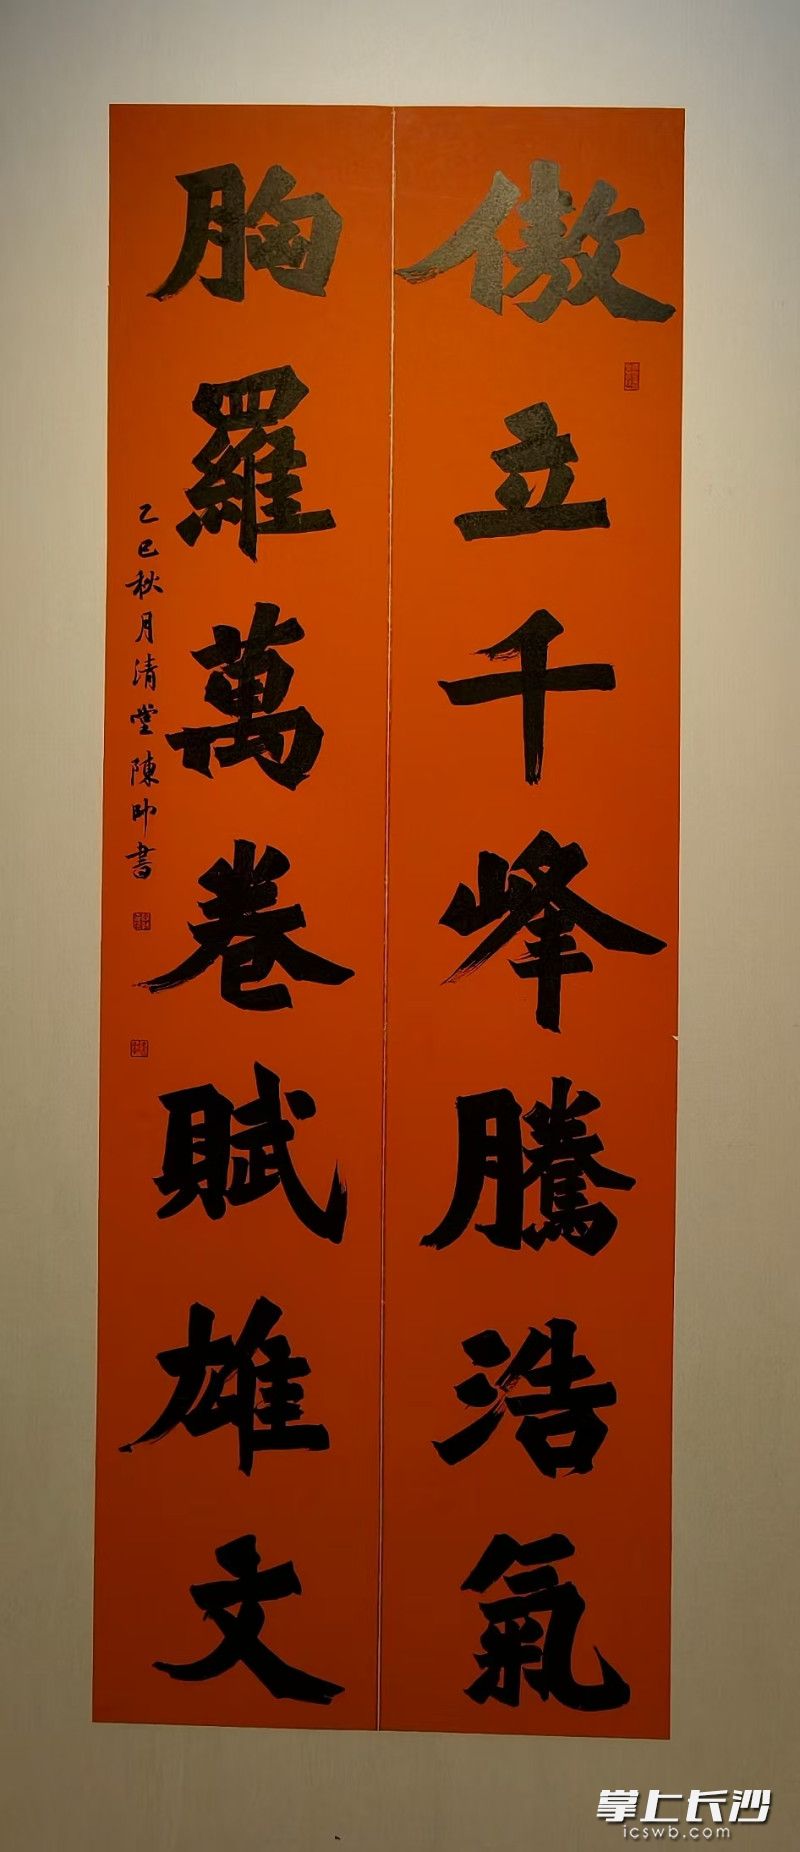 傲立千峰騰浩氣
胸羅萬卷賦雄文
乙巳秋月清堂陳帥書
掌上长沙
icswb.com